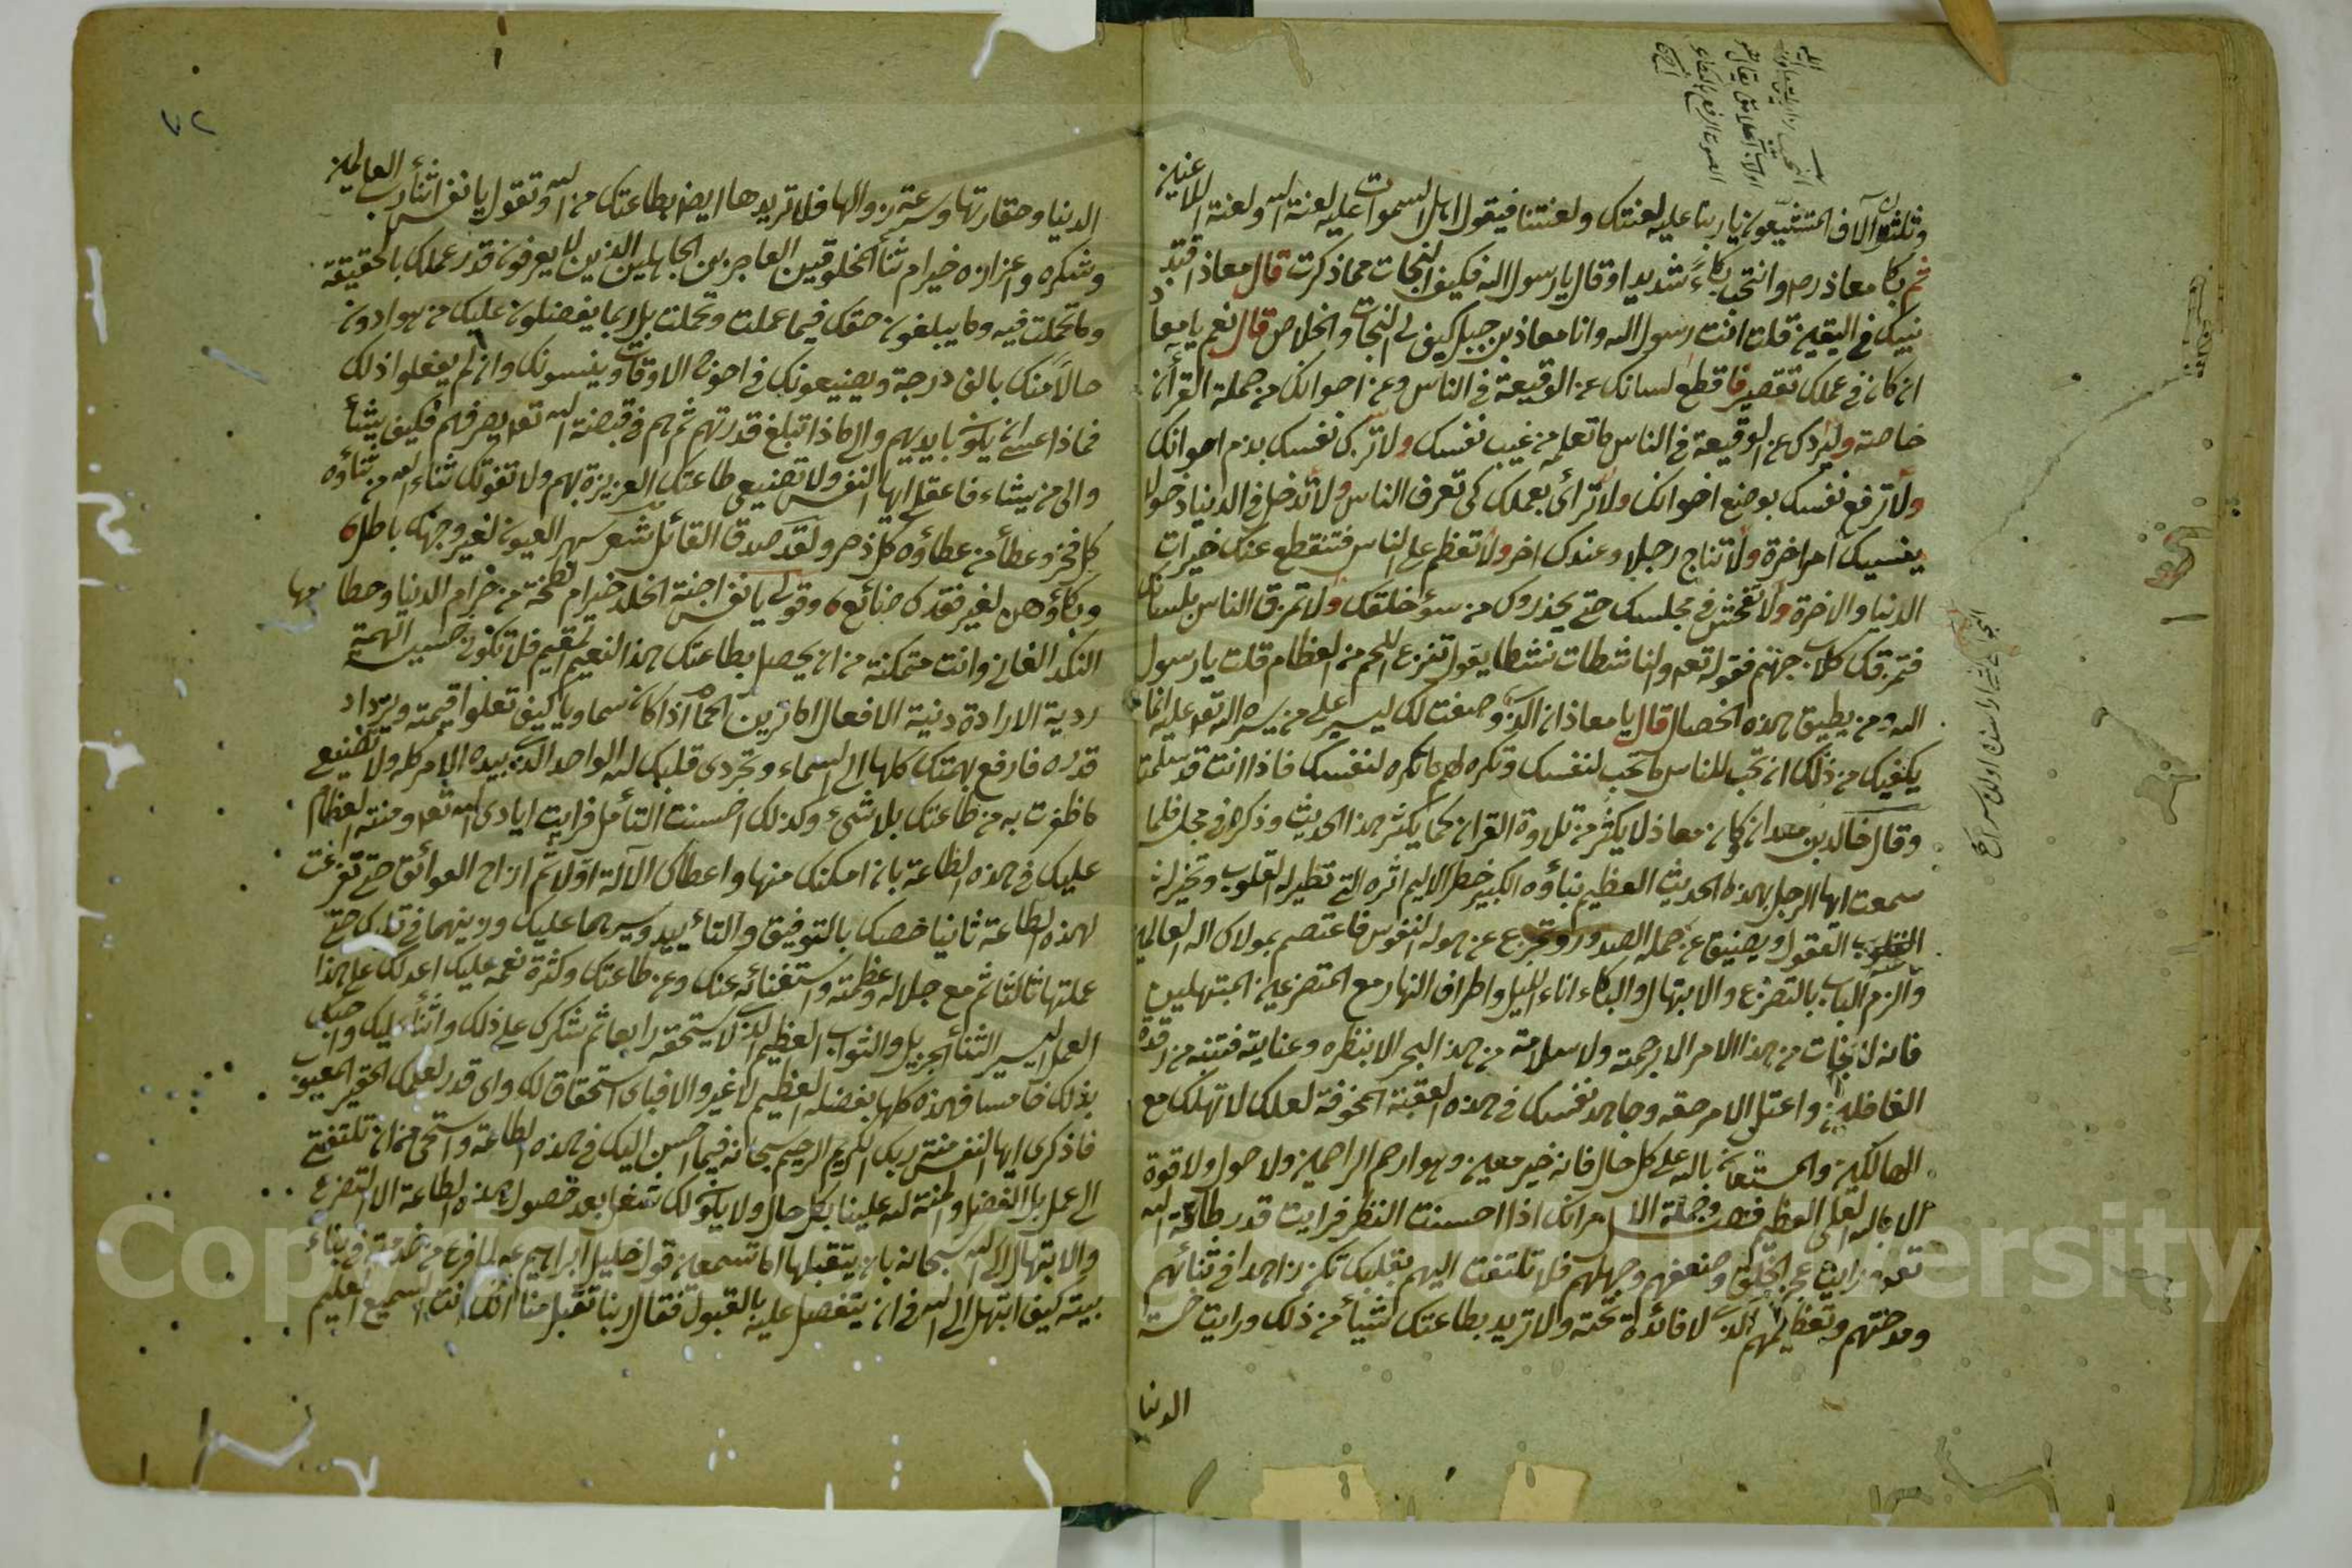 وثلثة آلاف المتشيعون يا ربنا عليه لعنتك ولعنتنا فيقول اهل السموات عليه لعنة الله ولعنة اللاعنين
ثم بكا معاذ رح وانتحب بكاءً شديدا وقال يا رسول الله فكيف النجات مما ذكرت قال معاذ اقتد
نبيك في اليقين قلت انت رسول الله وانا معاذ بن جبل كيف لي النجات والخلاص قال نعم يا معاذ
ان كان في عملك تقصير فاقطع لسانك عن الوقيعة في الناس وعن اخوانك من حملة القرأن
خاصة وليردك عن الوقيعة في الناس ما تعلم من عيب نفسك ولا تزك نفسك بذم اخوانك
ولا ترفع نفسك بوضع اخوانك ولا ترأى بعملك كي تعرف الناس ولا تدخل في الدنيا دخولا
ينسيك امر اخرة ولا تناج رجلا وعندك اخر ولا تعظم على الناس فتنقطع عنك خيرات
الدنيا والاخرة ولا تفحش في مجلسك حتى يحذروك من سوء خلقك ولا تمزق الناس بلسانك
فتمزقك كلاب جهنم فقوله تعه والناشطات نشطا يقول تنزع اللحم من العظام قلت يا رسول
الله ومن يطيق هذه الخصال قال يا معاذ ان الذي وصفت لك ليسير على من يسره الله تعه عليه انما
يكفيك من ذلك ان تحب للناس ما تحب لنفسك وتكره لهم ما تكره لنفسك فاذا انت قد سلمت
وقال خالد بن معدان وكان معاذ لا يكثر من تلاوة القران كما يكثر هذا الحديث وذكره في مجلس فلما
سمعت ايها الرجل بهذه الحديث العظيم نبأؤه الكبير خطر الاليم اثره التي تطير له القلوب وتخير له
العقول ويضيق عن حمله الصدور وتجزع عن هوله النفوس فاعتصم بمولاك اله العالمين
والزم الباب بالتضرع والابتهال والبكاء اناء الليل واطراف النهار مع المتضرعين المبتهلين
فانه لا نجات من هذا الامر الا برحمته ولا سلامة من هذا البحر الا بنظره وعنايته فتنبه من رقدة
الغافلين واعتل الامر حقه وجاهد نفسك في هذه العقبة المخوفة لعلك لا تهلك مع
الهالكين والمستعان بالله على كل حال فانه خير معين وهو ارحم الراحمين ولا حول ولا قوة
الا بالله العلي العظيم وجملة الامر انك اذا احسنت النظر فرايت قدر طاعة الله
تعه ورايت عجز الخلق وضعفهم وجهلهم فلا تلتفت اليهم بقلبك تكن زاهدا في ثنائهم
ومدحتهم وتعظيمهم الذي لا فائدة تحته ولا تريد بطاعتك شيأ من ذلك ورايت خسة
الدنيا
٧٢
الدنيا وحقارتها وسرعة زوالها فلا تريدها ايض بطاعتك من الله وتقول يا نفس اثنأ رب العالمين
وشكره واعزازه خير ام ثنأ المخلوقين العاجزين الجاهلين الذين لا يعرفون قدر عملك بالحقيقة
وما تحملت فيه وما يبلغون حقك فيما عملت وتحملت بل ربما يفضلون عليك من هو ادون
حالاً منك بالف درجة ويضيعونك في احوج الاوقات وينسونك وان لم يفعلوا ذلك
فماذا عسى ان يكون بايديهم والى ماذا تبلغ قدرتهم ثم هم في قبضة الله تعه يصرفهم فكيف يشأ
والى من يشاء فاعقلي ايها النفس ولا تضيعي طاعتك العزيزة بهم ولا تفوتك ثناء الله من ثناؤه
كل فخر وعطأ من عطاؤه كل ذخر ولقد صدق القائل شعر سهر العيون لغير وجهك باطل
وبكاؤهن لغير فقدك ضائع وقولي يا نفس اجنة الخلد خير ام لطخة من حرام الدنيا وحطامها
النكد الفاني وانت متمكنة من ان يحصل بطاعتك هذا النعيم المقيم فلا تكون خسيس الهمة
ردية الارادة دنية الافعال اما ترين الحمام اذا كان سماويا كيف تعلوا قيمته ويزداد
قدره فارفع همتك كلها الى السماء وتجردي قلبك لله الواحد الذي بيده الامر كله ولا تضيع
ما ظفرت به من طاعتك بلا شيء وكذلك احسنت التأمل فرايت ايادى الله تعه ومنته العظام
عليك في هذه الطاعة بان امكنك منها واعطاك الآلة اولا ثم ازاح العوائق حتى تفرغت
لهذه الطاعة ثانيا خصك بالتوفيق والتأييد ويسرها عليك وزينها في قلبك حتى
عملتها ثالثا ثم مع جلاله وعظمته واستغنائه عنك وعن طاعتك وكثرة نعمه عليك اعد لك على هذا
العمل اليسير الثنأ الجزيل والثواب العظيم الذي لا يستحقه رابعا ثم شكرك على ذلك واثنأ عليك واحبك
بذلك خامسا فهذه كلها بفضله العظيم لا غير والا فباى استحقاق لك واى قدر لعملك الحقير المعيوب
فاذكرى ايها النفس منة ربك الكريم الرحيم سبحانه فيما احسن اليك في هذه الطاعة واستحي من ان تلتفتي
الى عمل بل الفضل والمنة لله علينا بكل حال ولا يكون لك شغل بعد حصول هذه الطاعة الا التضرع
والابتهال الى الله سبحانه بان يتقبلها اما تسمعين قول خليل ابراهيم عه لما فرغ من خدمته في بناء
بيته كيف ابتهل الى الله في ان يتفضل عليه بالقبول فقال ربنا تقبل منا انك انت السميع العليم